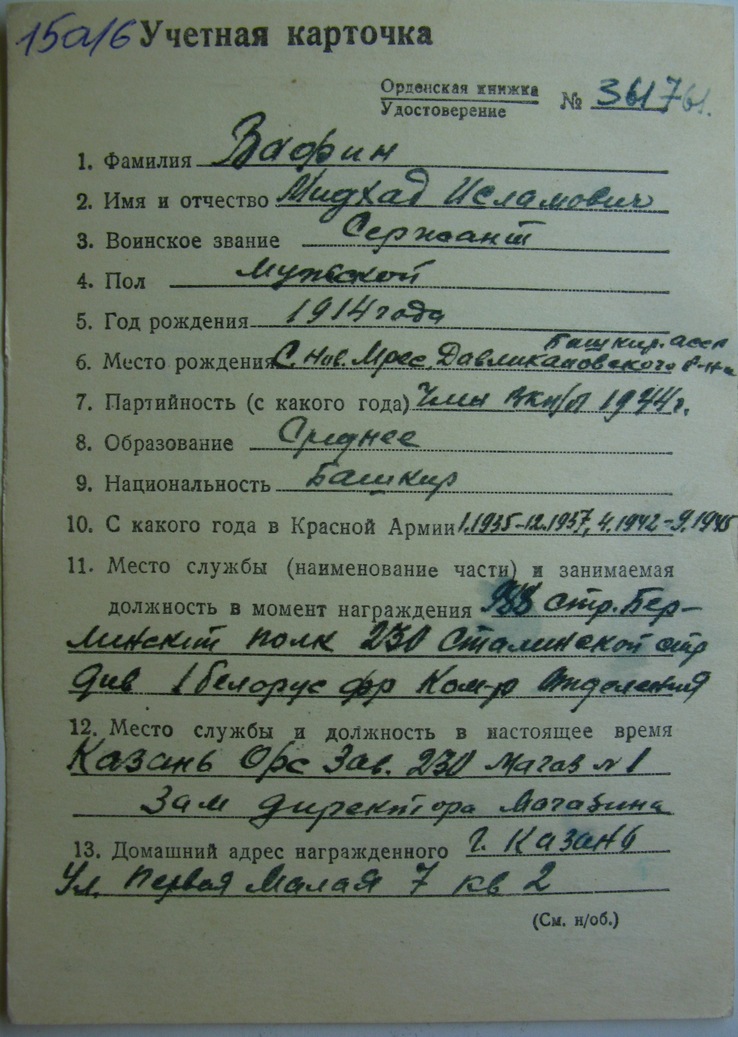 15а/6 Учетная карточка
Орденская книжка
Удостоверение № 361761.
1. Фамилия Вафин
2. Имя и отчество Мидхад Исламович
3. Воинское звание Сержант
4. Пол мужской
5. Год рождения 1914 года
Башкир. асср
6. Место рождения С. Нов. Мрес, Давликановского р-на
7. Партийность (с какого года) Член вкп/б/ 1944 г.
8. Образование Среднее
9. Национальность Башкир
10. С какого года в Красной Армии 1.1935-12.1937, 4.1942-9.1945
11. Место службы (наименование части) и занимаемая
должность в момент награждения 988 стр. Бер-
линский полк 230 Сталинской стр
див 1 белорус фр Ком-р отделения
12. Место службы и должность в настоящее время
Казань Орс Зав. 230 Магаз № 1
Зам директора Магазина
13. Домашний адрес награжденного г. Казань
Ул. Первая Малая 7 кв 2
(См. н/об.)